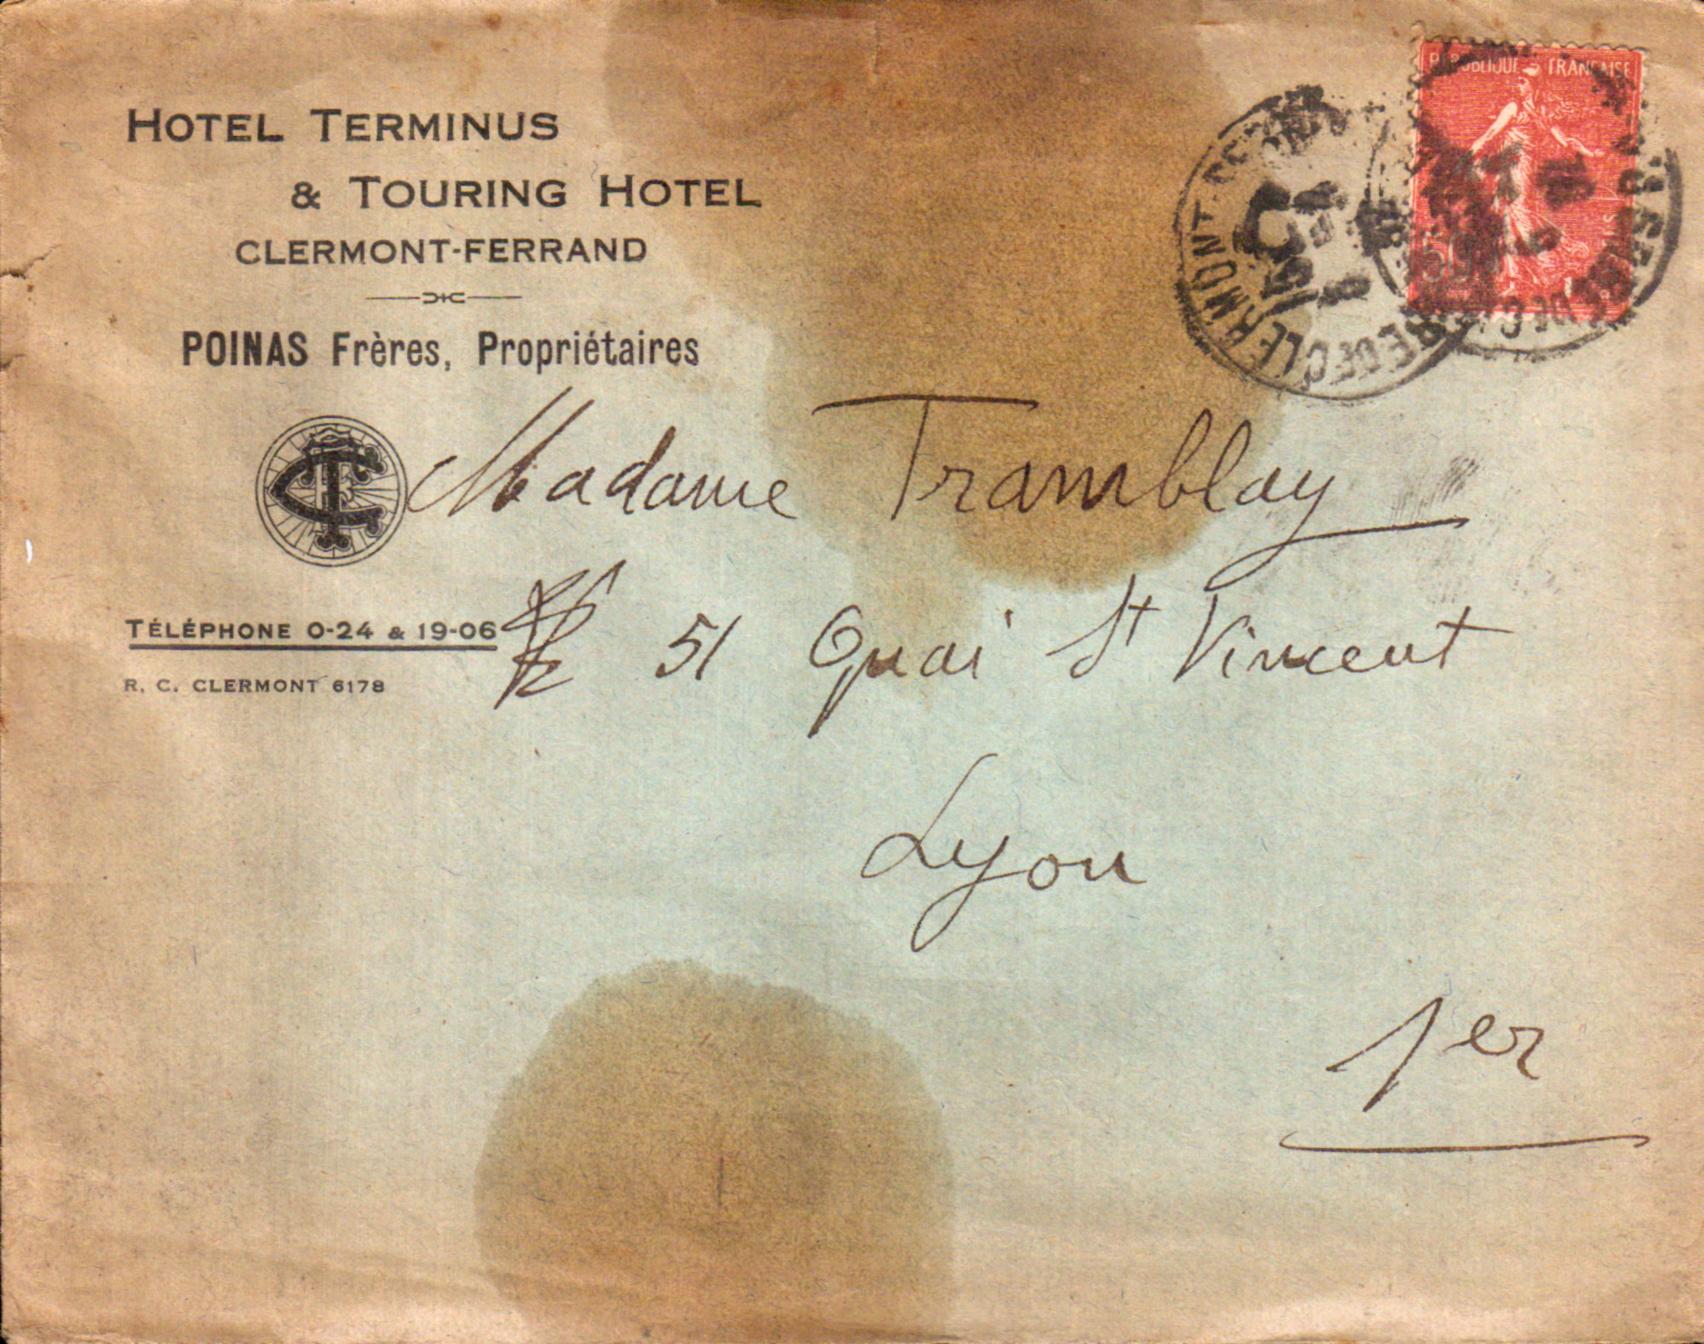 HOTEL TERMINUS
& TOURING HOTEL
CLERMONT-FERRAND
POINAS Frères, Propriétaires
Madame Tramblay
TÉLÉPHONE 0-24 & 19-06
51 Quai St Vincent
R. C. CLERMONT 6178
Lyon
1er
REPUBLIQUE FRANÇAISE
GARE DE CLERMONT-FERRAND